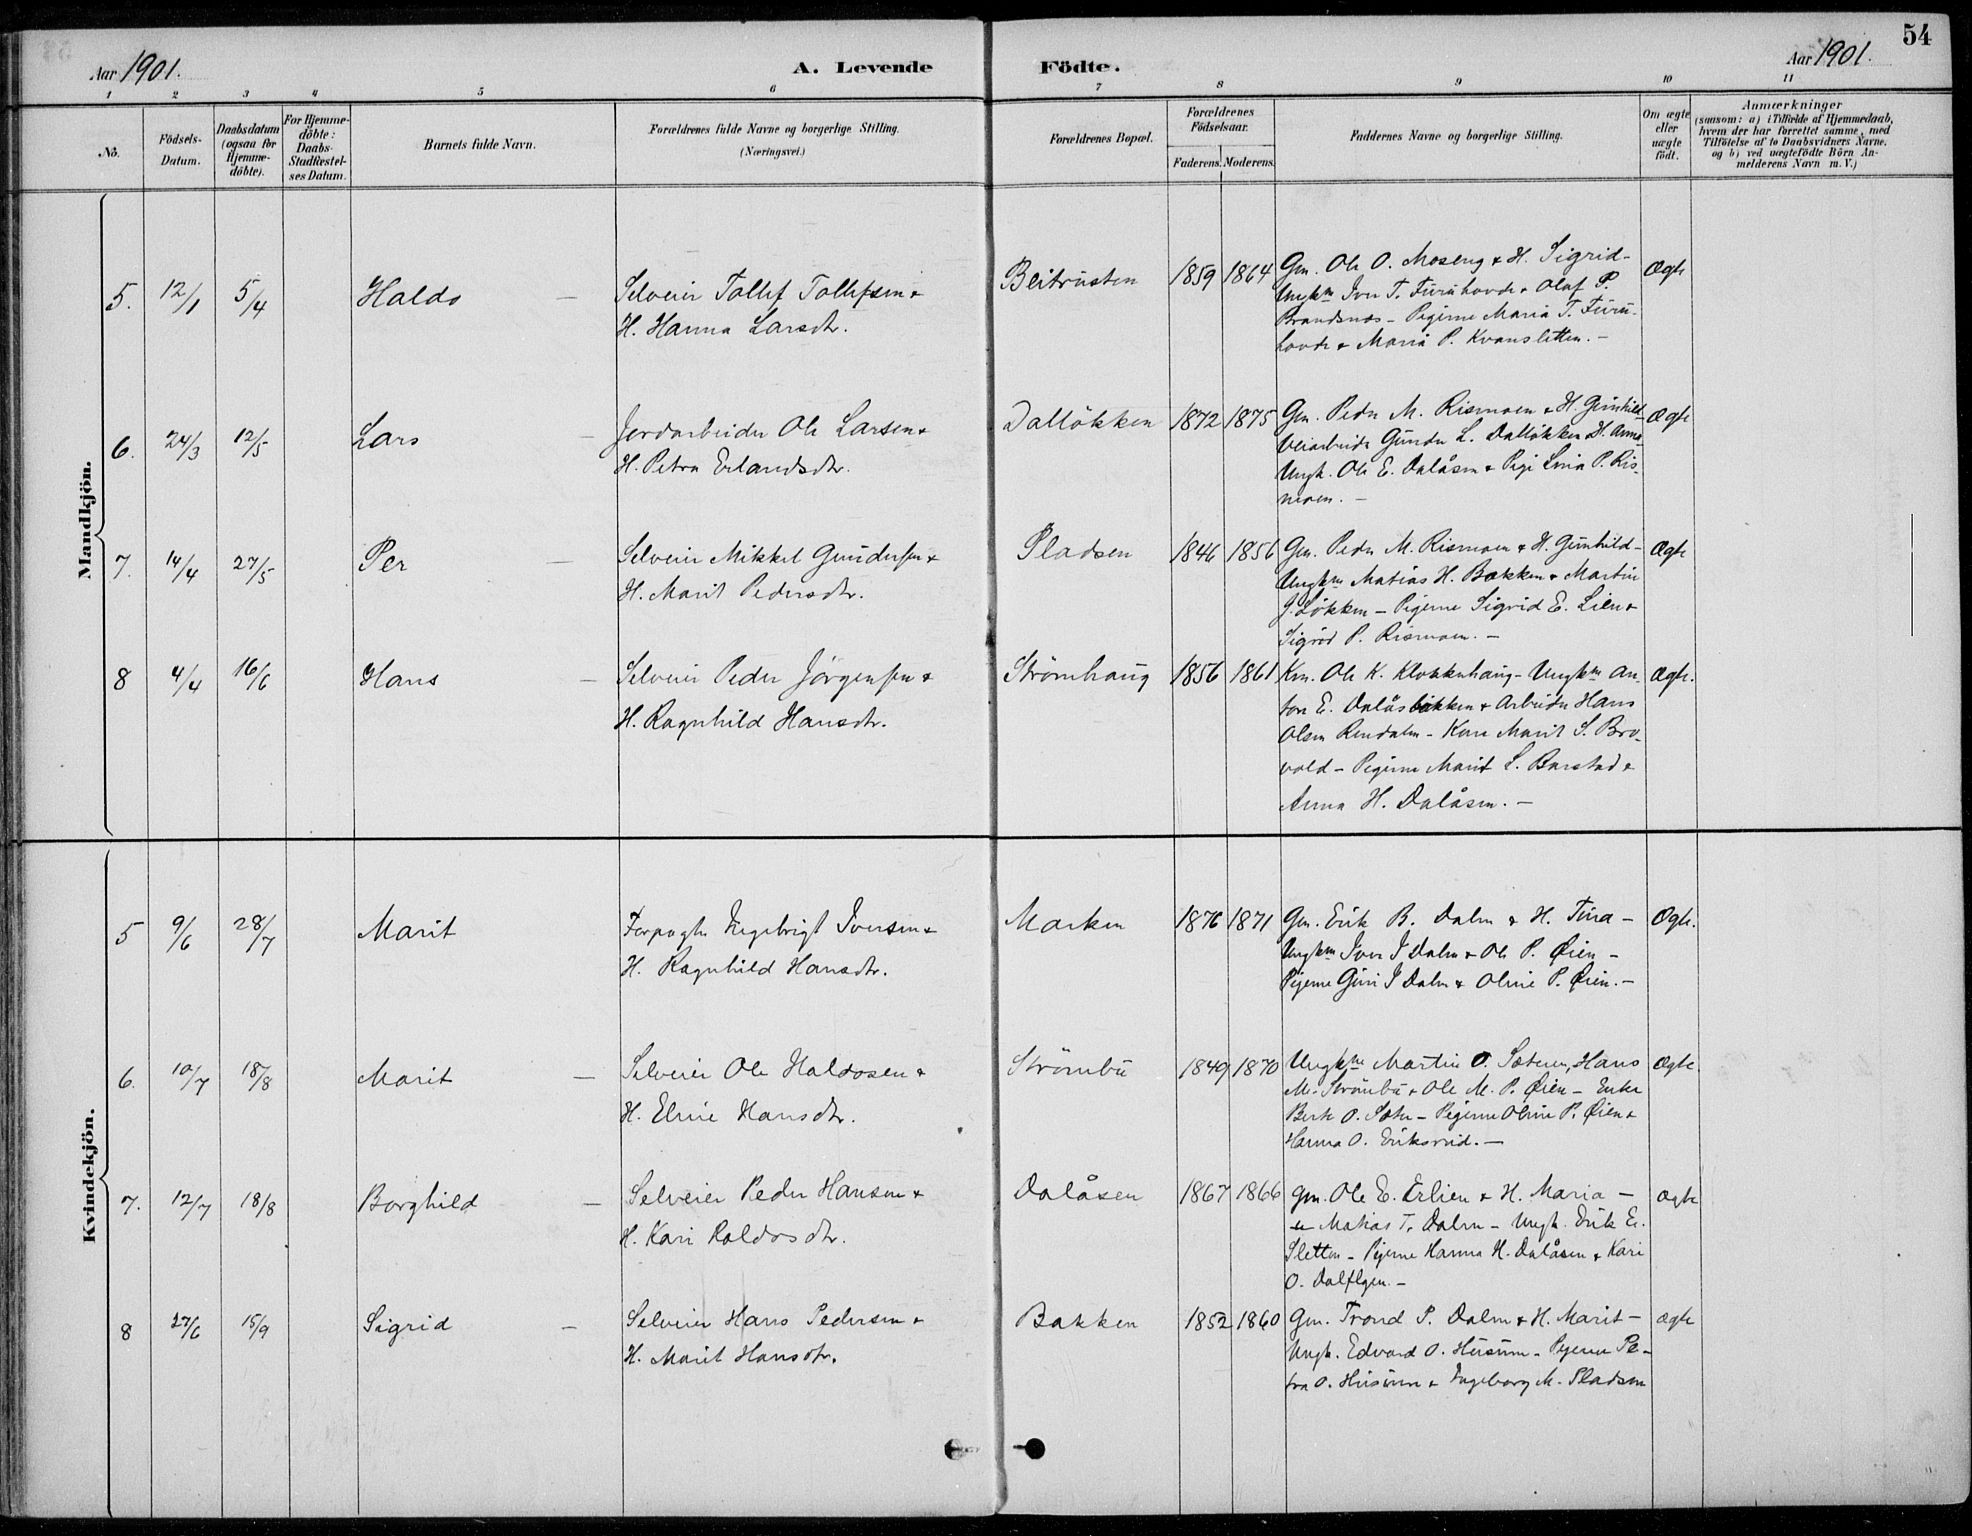 54
Aar 1901.
A. Levende Födte.
Aar 1901.
1 2 3 4 5 6 7 8 9 10 11
No.
Födsels-
Datum.
Daabsdatum
(ogsaa for
Hjemme-
döbte).
For Hjemme-
döbte:
Daabs-
Stadfæstel-
ses Datum.
Barnets fulde Navn.
Forældrenes fulde Navne og borgerlige Stilling.
(Næringsvei.)
Forældrenes Bopæl.
Forældrenes
Födselsaar.
Faderens. Moderens.
Faddernes Navne og borgerlige Stilling.
Om ægte
eller
uægte
födt.
Anmærkninger
(saasom: a) i Tilfælde af Hjemmedaab,
hvem der har forrettet samme, med
Tilföielse af to Daabsvidners Navne,
og b) ved uægtefödte Börn An-
melderens Navn m. V.)
Mandkjön.
5. 12/1 5/4 Haldo –
Selveier Tollef Tollefsen &
H. Hanna Larsdtr.
Beitrusten 1859 1864
Gm. Ole O. Moseng & H. Sigrid –
Ungkm Iver T. Furuhovde & Olaf P.
Brandsnes – Pigerne Maria T. Furu-
hovde & Mari P. Kvansletten. –
Ægte
6. 24/3 12/5 Lars –
Jordarbeider Ole Larsen &
H. Petra Erlandsdtr.
Dalløkken 1872 1875
Gm. Peder M. Rismoen & H. Gunhild –
Veiarbeider Gunder L. Dalløkken & H. Anna –
Ungk. Ole E. Dalåsen & Pige Lina P. Ris-
moen. –
Ægte
7. 14/4 27/5 Per –
Selveier Mikkel Gundersen &
H. Marit Pedersdtr.
Pladsen 1846 1856
Gm. Peder M. Rismoen & H. Gunhild –
Ungkm Matias H. Bakken & Martin
J. Løkken – Pigerne Sigrid E. Lien &
Sigrid P. Rismoen. –
Ægte
8 4/4 16/6 Hans –
Selveier Peder Jörgensen &
H. Ragnhild Hansdtr.
Strömhaug 1856 1861
Km. Ole K. Klokkerhaug – Ungkm An-
ton E. Dalåsbakken & Arbeider Hans
Olsen Rendalen – Kone Marit S. Bro-
vold – Pigerne Marit L. Barstad &
Anna H. Dalåsen. –
Ægte.
Kvindekjön.
5 9/6 28/7 Marit
Forpagter Ingebrigt Iversen &
H. Ragnhild Hansdtr.
Marken 1876 1871
Gm. Erik B. Dalen & H. Tina –
Ungkm Iver I Dalen & Ole P. Øien –
Pigerne Guri I Dalen & Oline P. Øien. –
Ægte.
6. 10/7 18/8 Marit –
Selveier Ole Haldosen &
H. Eline Hansdtr.
Strömbu 1849 1870
Ungkm Martin O. Sæteren, Hans
M. Strömbu & Ole M. P. Øien – Enke
Berte O. Sæter – Pigerne Oline P. Øien &
Hanna O. Eriksrud. –
Ægte
7. 12/7 18/8 Borghild –
Selveier Peder Hansen &
H. Kari Haldosdtr.
Dalåsen 1867 1866
Gm. Ole E. Erlien & H. Maria –
Matias T. Dalen – Ungk. Erik E.
Sletten – Pigerne Hanna H. Dalåsen & Kari
O. Dalflyen. –
ægte
8 27/6 15/9 Sigrid –
Selveier Hans Pedersen &
H. Marit Hansdtr.
Bakken 1852 1860
Gm. Trond P. Dalen & H. Marit –
Ungk. Edvard O. Husum – Pigerne Pe-
tra O. Husum & Ingeborg M. Pladsen
ægte